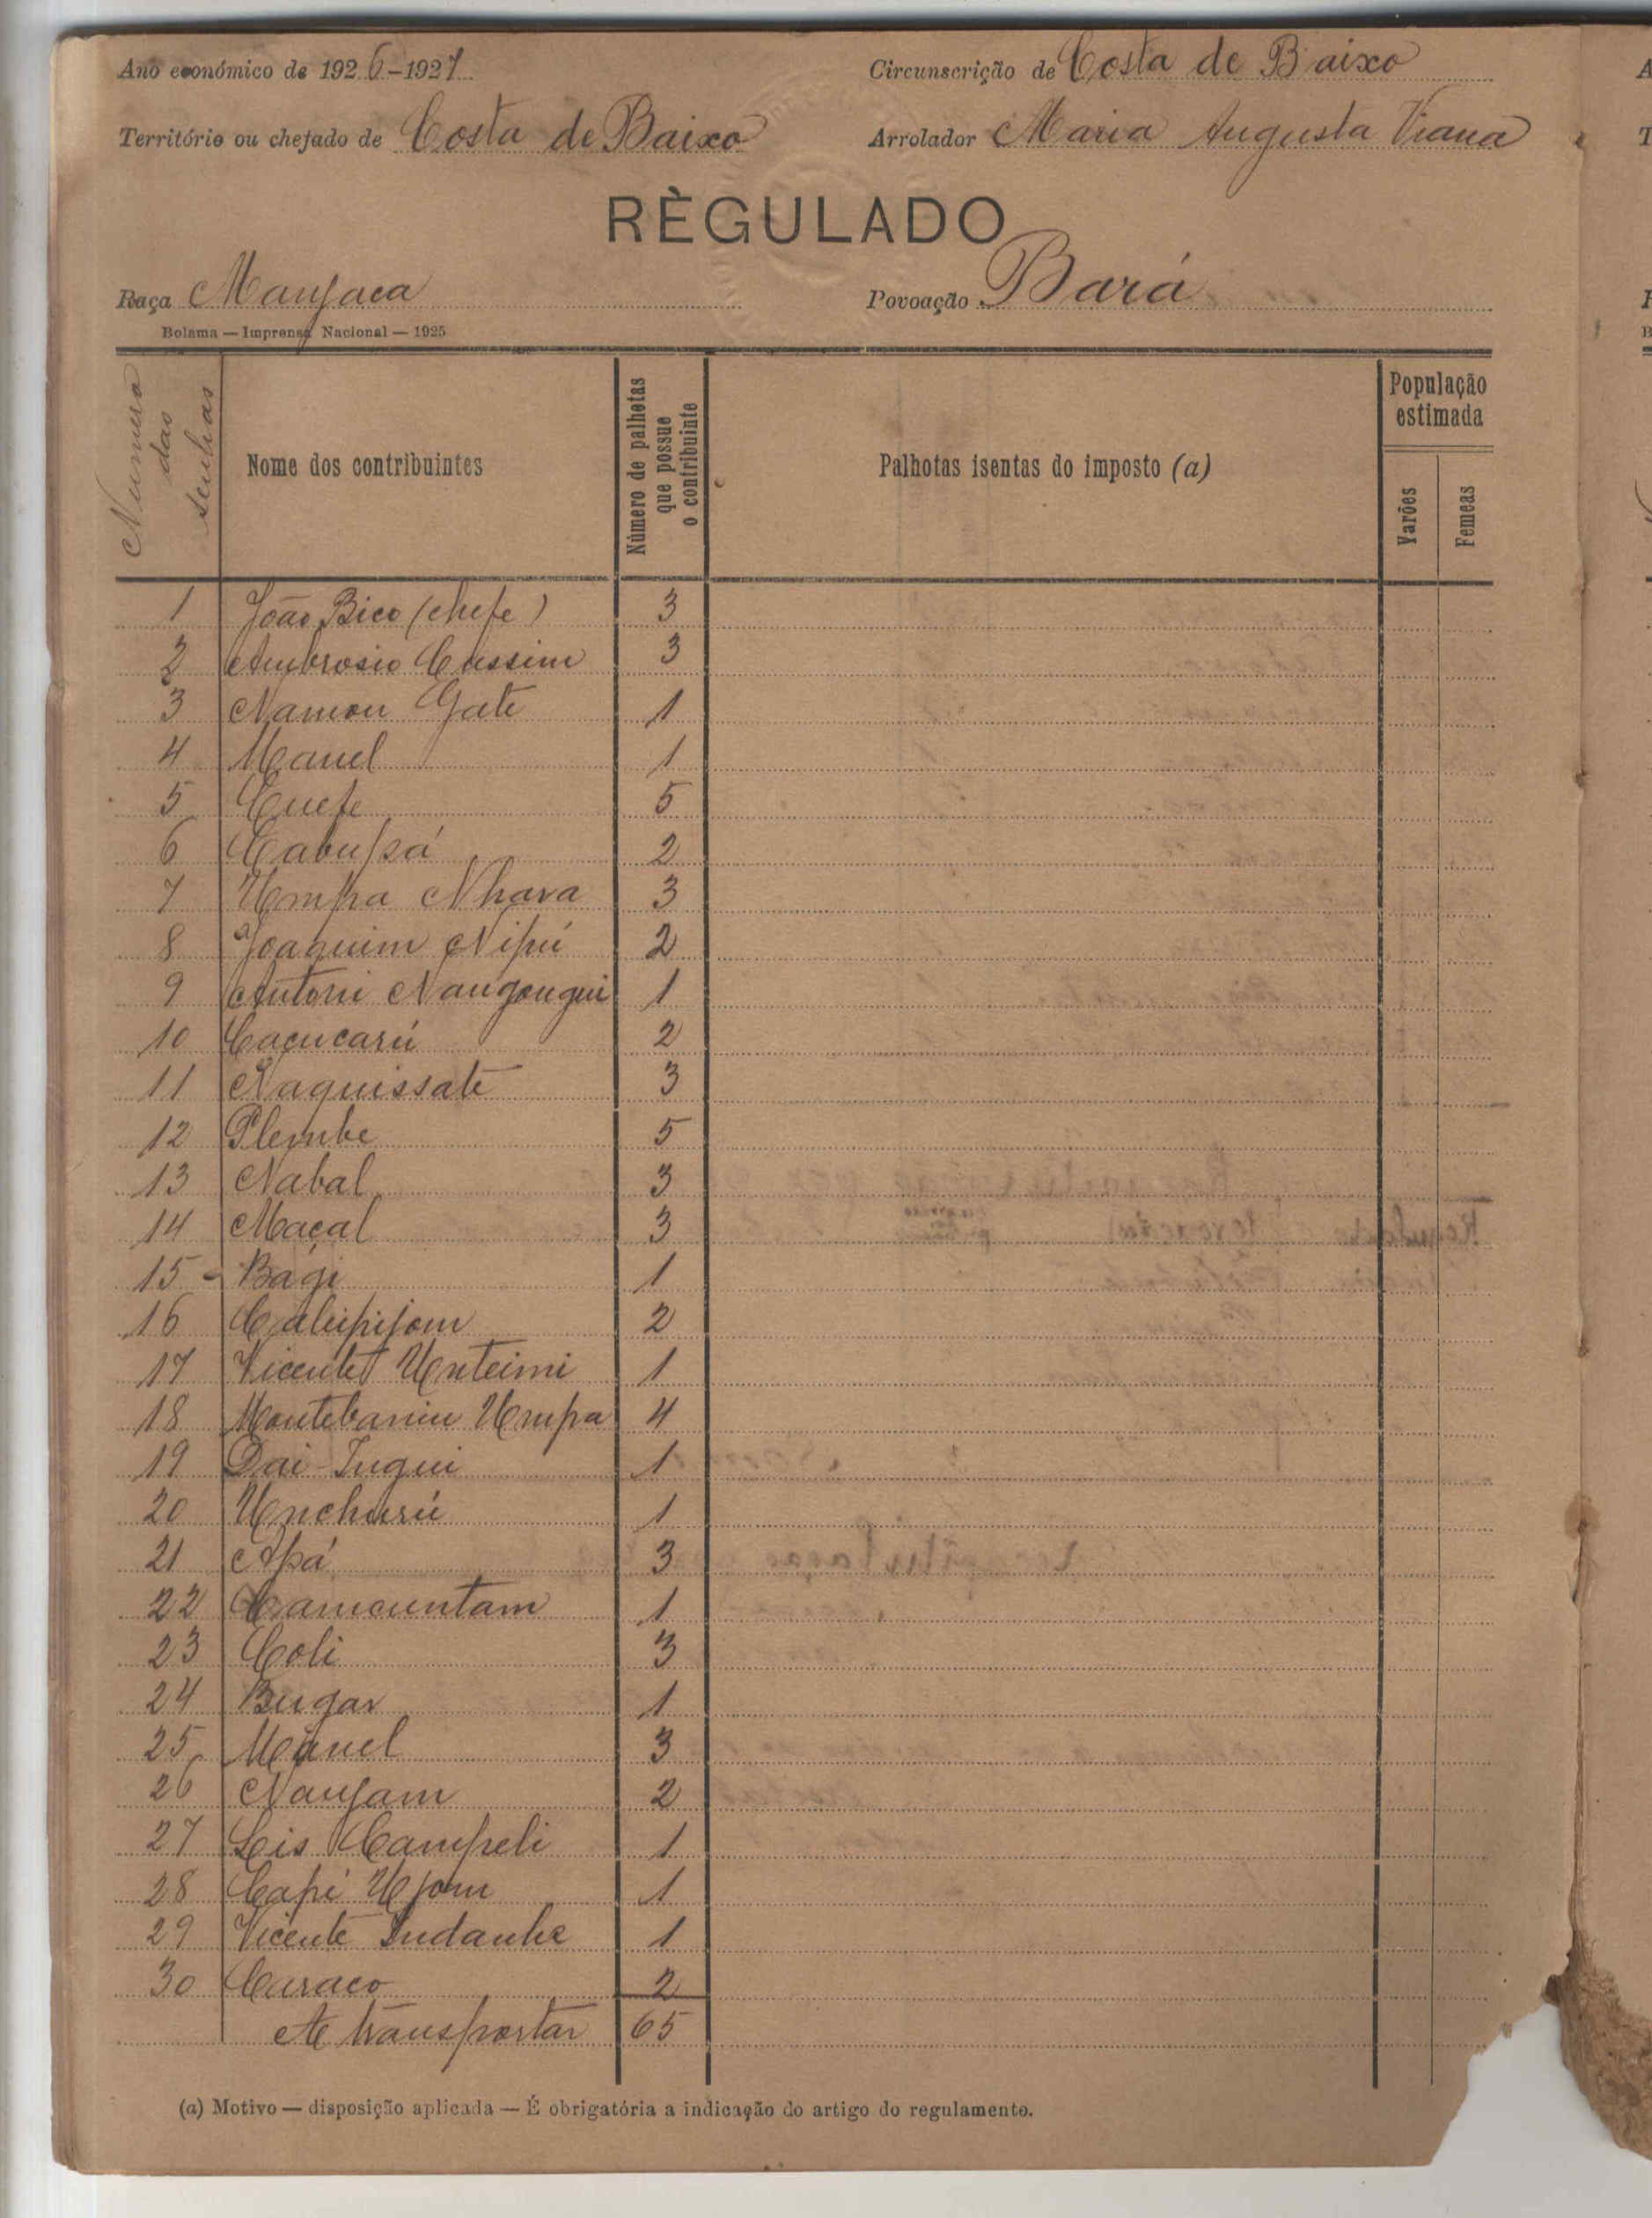 Ano económico de 1926-1927
Circunscrição de Costa de Baixo
Território ou chefado de Costa de Baixo
Arrolador Maria Augusta Viana
RÈGULADO
Raça Manjaca
Povoação Bará
Bolama — Imprensa Nacional — 1925
Numero das senhas
Nome dos contribuintes
Número de palhotas que possue o contribuinte
Palhotas isentas do imposto (a)
População estimada
Varões
Femeas
1 João Bico (chefe) 3
2 Ambrosio Cassim 3
3 Namon Gate 1
4 Manel 1
5 Cuefe 5
6 Cabupá 2
7 Umpa Nhara 3
8 Joaquim Nipú 2
9 Antoni Nangongui 1
10 Caçucarú 2
11 Naquissate 3
12 Plembe 5
13 Nabal 3
14 Maçal 3
15 - Bagi 1
16 Calipijom 2
17 Vicente Unteimi 1
18 Montebanim Umpa 4
19 Dai-Ingui 1
20 Unchurú 1
21 Apá 3
22 Camcuntam 1
23 Coli 3
24 Bugar 1
25 Manel 3
26 Nanjam 2
27 Leis Campeli 1
28 Capi Ujom 1
29 Vicente Indanhe 1
30 Caraco 2
A transportar 65
(a) Motivo — disposição aplicada — É obrigatória a indicação do artigo do regulamento.